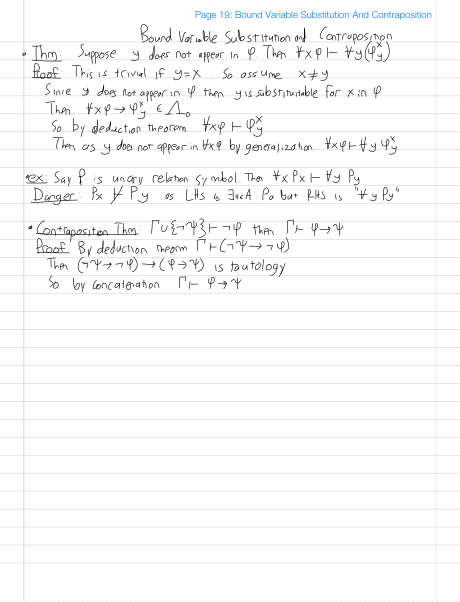 Page 19: Bound Variable Substitution And Contraposition
Bound Variable Substitution and Contraposition
• Thm: Suppose y does not appear in φ. Then ∀xφ ⊢ ∀y(φ^x_y)
Proof: This is trivial if y=x. So assume x≠y
Since y does not appear in φ then y is substitutable for x in φ
Then ∀xφ → φ^x_y ∈ Λ₀
So by deduction theorem ∀xφ ⊢ φ^x_y
Then as y does not appear in ∀xφ by generalization ∀xφ ⊢ ∀y φ^x_y
•ex: Say P is unary relation symbol. Then ∀x Px ⊢ ∀y Py
Danger: Px ⊬ Py as LHS is ∃a∈A. Pa but RHS is "∀y Py"
• Contraposition Thm: Γ∪{¬ψ} ⊢ ¬φ then Γ ⊢ φ→ψ
Proof: By deduction theorem Γ ⊢ (¬ψ → ¬φ)
Then (¬ψ→¬φ) → (φ→ψ) is tautology
So by concatenation Γ ⊢ φ→ψ